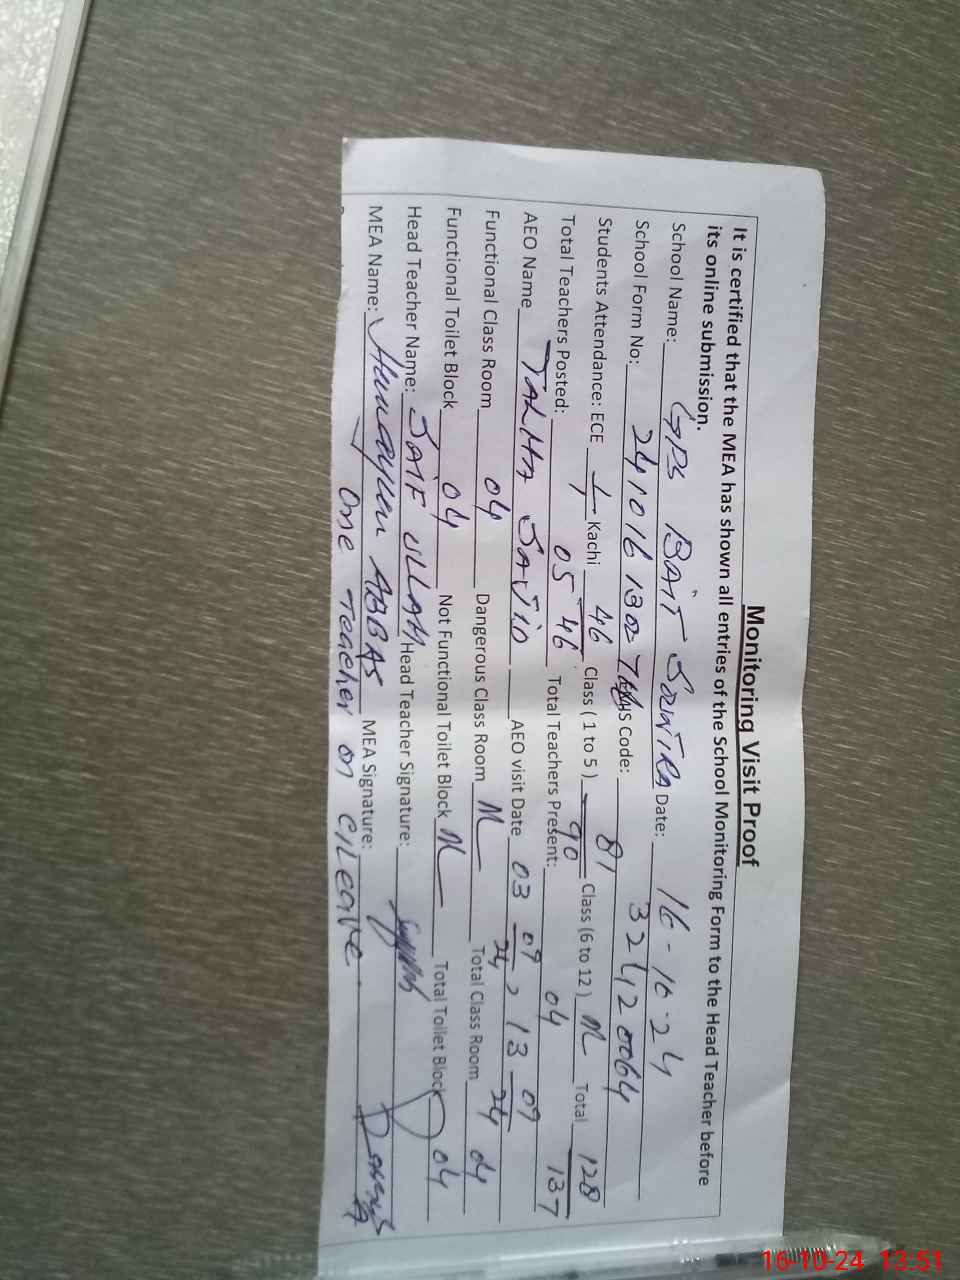 Monitoring Visit Proof
It is certified that the MEA has shown all entries of the School Monitoring Form to the Head Teacher before
its online submission.
School Name: GPS BAIT SOUNTRA Date: 16-10-24
School Form No: 241016 1302 Code: 32412 0064
Students Attendance: ECE Kachi 46/46 Class ( 1 to 5 ) 81/90 Class (6 to 12 ) Nil Total 128/137
Total Teachers Posted: 05 Total Teachers Present: 04
AEO Name TALHA JAVID AEO visit Date 03 09 24, 13 09 24
Functional Class Room 04 Dangerous Class Room Nil Total Class Room 04
Functional Toilet Block 04 Not Functional Toilet Block Nil Total Toilet Block 04
Head Teacher Name: SAIF ULLAH Head Teacher Signature:
MEA Name: Humayun ABBAS MEA Signature:
One Teacher on C/Leave.
16-10-24 13:51